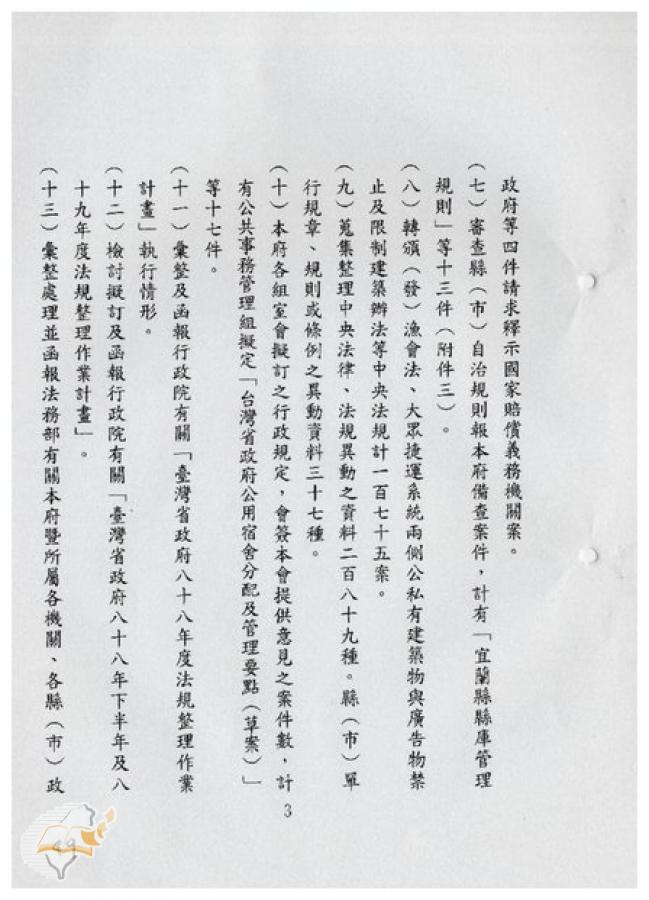 政府等四件請求釋示國家賠償義務機關案。
(七)審查縣(市)自治規則報本府備查案件,計有「宜蘭縣縣庫管理
規則」等十三件(附件三)。
(八)轉頒(發)漁會法、大眾捷運系統兩側公私有建築物與廣告物禁
止及限制建築辦法等中央法規計一百七十五案。
(九)蒐集整理中央法律、法規異動之資料二百八十九種。縣(市)單
行規章、規則或條例之異動資料三十七種。
(十)本府各組室會擬訂之行政規定,會簽本會提供意見之案件數,計
有公共事務管理組擬定「台灣省政府公用宿舍分配及管理要點(草案)」
等十七件。
(十一)彙整及函報行政院有關「臺灣省政府八十八年度法規整理作業
計畫」執行情形。
(十二)檢討擬訂及函報行政院有關「臺灣省政府八十八年下半年及八
十九年度法規整理作業計畫」。
(十三)彙整處理並函報法務部有關本府暨所屬各機關、各縣(市)政
3
49